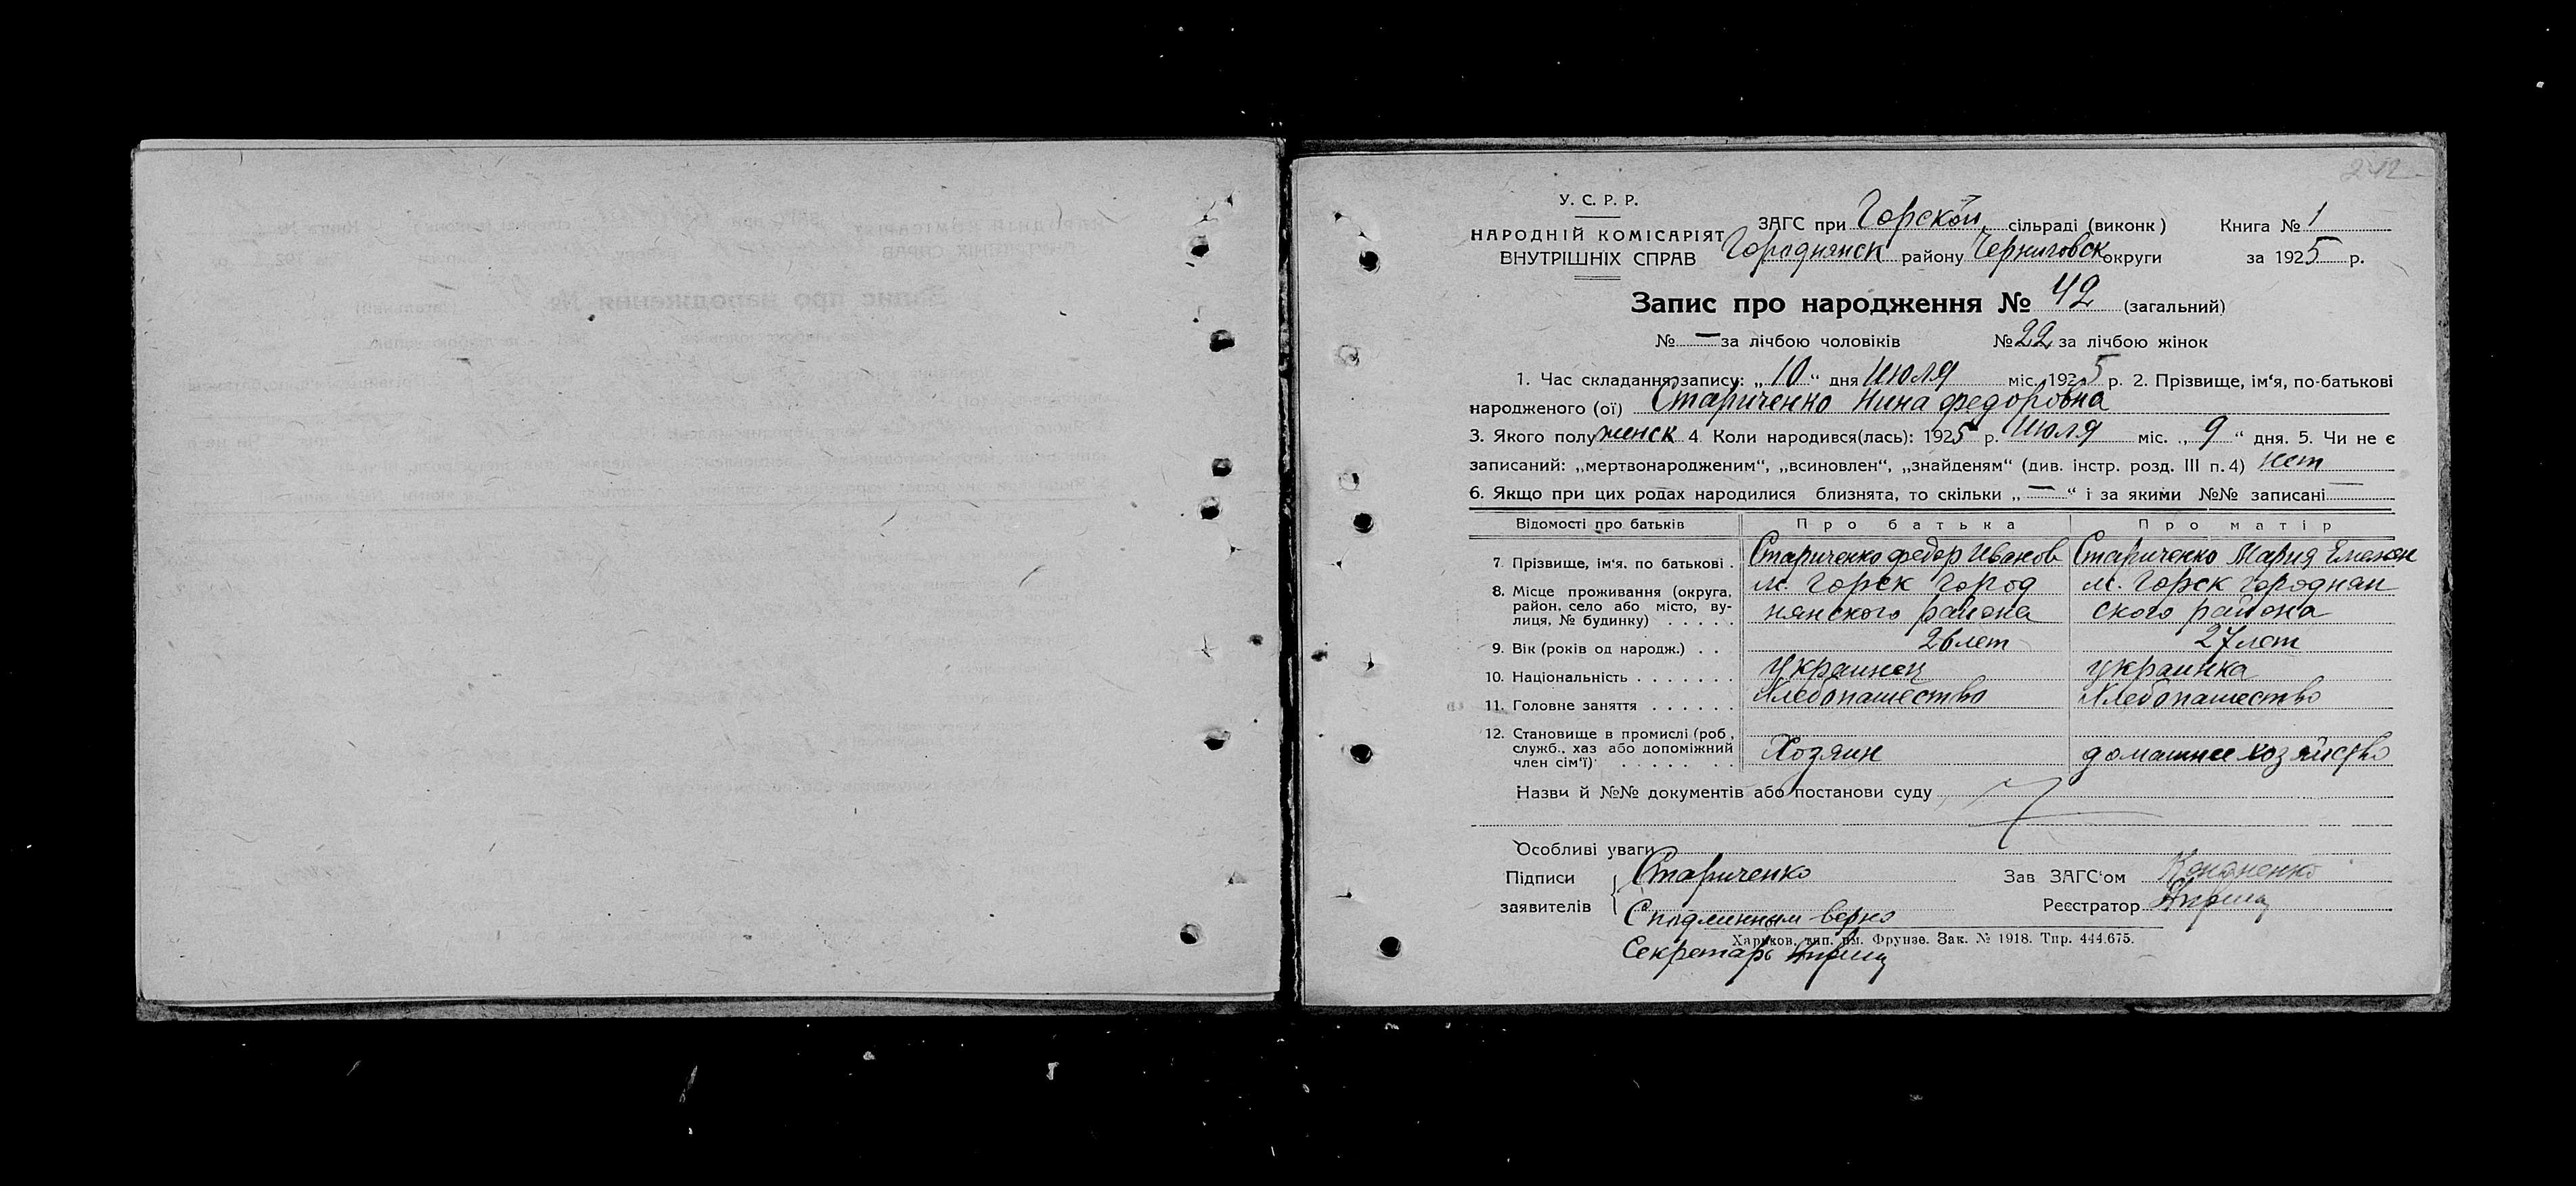 242
У. С. Р. Р.
НАРОДНІЙ КОМІСАРІЯТ
ВНУТРІШНІХ СПРАВ
ЗАГС при Горской сільраді (виконк) Книга № 1
Городнянск району Черниговск округи за 1925 р.
Запис про народження № 42 (загальний)
№ — за лічбою чоловіків № 22 за лічбою жінок
1. Час складання запису: „10“ дня Июля міс. 1925 р. 2. Прізвище, ім‘я, по-батькові
народженого (ої) Стариченко Нина Федоровна
3. Якого полу женск 4. Коли народився(лась): 1925 р. Июля міс. „9“ дня. 5. Чи не є
записаний: „мертвонародженим“, „всиновлен“, „знайденям“ (див. інстр. розд. III п. 4) нет
6. Якщо при цих родах народилися близнята, то скільки „—“ і за якими №№ записані —
Відомості про батьків Про батька Про матір
7. Прізвище, ім‘я, по батькові. Стариченко Федор Иванов Стариченко Мария
8. Місце проживання (округа, м. Горск Город м. Горск Городнян
район, село або місто, ву- нянского района ского района
лиця, № будинку) . . . . .
9. Вік (років од народж.) . . 26 лет 27 лет
10. Національність . . . . . . . Украинец украинка
11. Головне заняття . . . . . . Хлебопашество Хлебопашество
12. Становище в промислі (роб.,
служб., хаз або допоміжний Хозяин домашнее хозяйство
член сім‘ї) . . . . . . .
Назви й №№ документів або постанови суду
Особливі уваги
Підписи Стариченко Зав ЗАГС‘ом Кононенко
заявителів Реєстратор
С подлинным верно
Харков, тип. ім. Фрунзе. Зак. № 1918. Тир. 444.675.
Секретарь